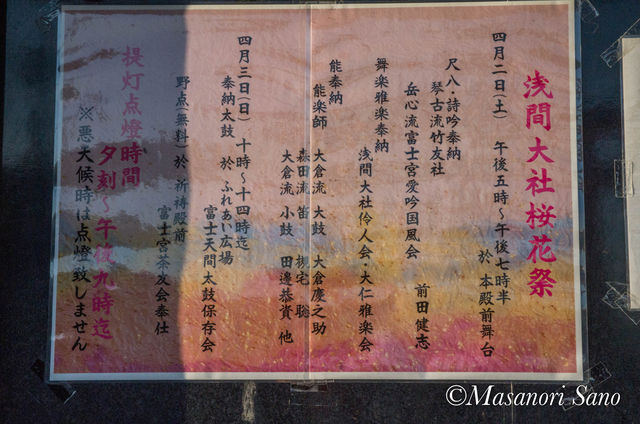 浅間大社桜花祭
四月二日(土) 午後五時~午後七時半
於 本殿前舞台
尺八・詩吟奉納
琴古流竹友社
岳心流富士宮愛吟国風会 前田健志
舞楽雅楽奉納
浅間大社伶人会・大仁雅楽会
能奉納
能楽師 大倉流 大鼓 大倉慶之助
森田流 笛 槻宅 聡
大倉流 小鼓 田邊恭資 他
四月三日(日) 十時~十四時迄
奉納太鼓 於 ふれあい広場
富士天間太鼓保存会
野点(無料)於 祈祷殿前
富士宮茶友会奉仕
提灯点燈時間
夕刻~午後九時迄
※悪天候時は点燈致しません
©Masanori Sano